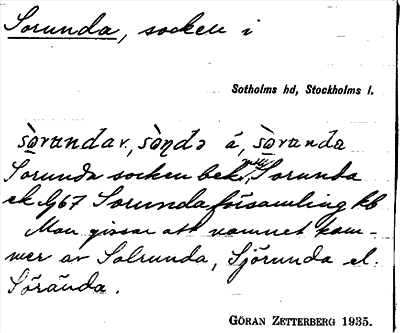 Sorunda, socken i
Sotholms hd, Stockholms l.
sòrundar, sòṇdə å, sòrunda
Sorunda socken bek,
Sorunda
ek G67 Sorunda församling kb
Man gissar att namnet kom-
mer av Solrunda, Sjörunda el.
Sörända.
GÖRAN ZETTERBERG 1935.